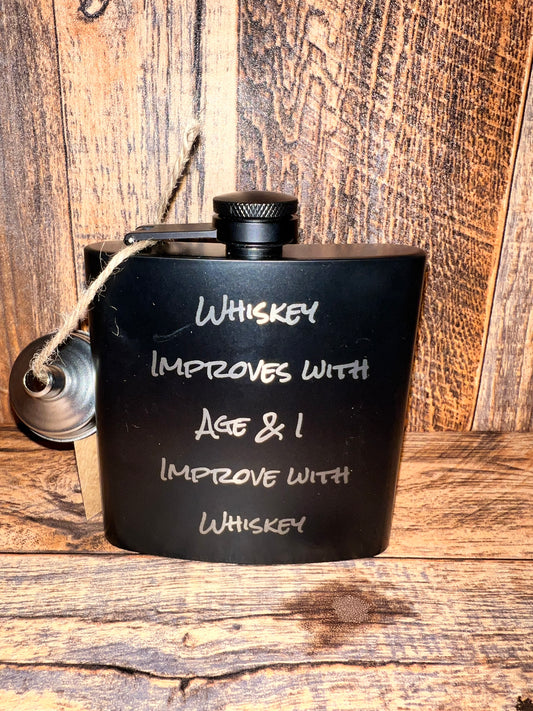 Whiskey
Improves with
Age & I
Improve with
Whiskey